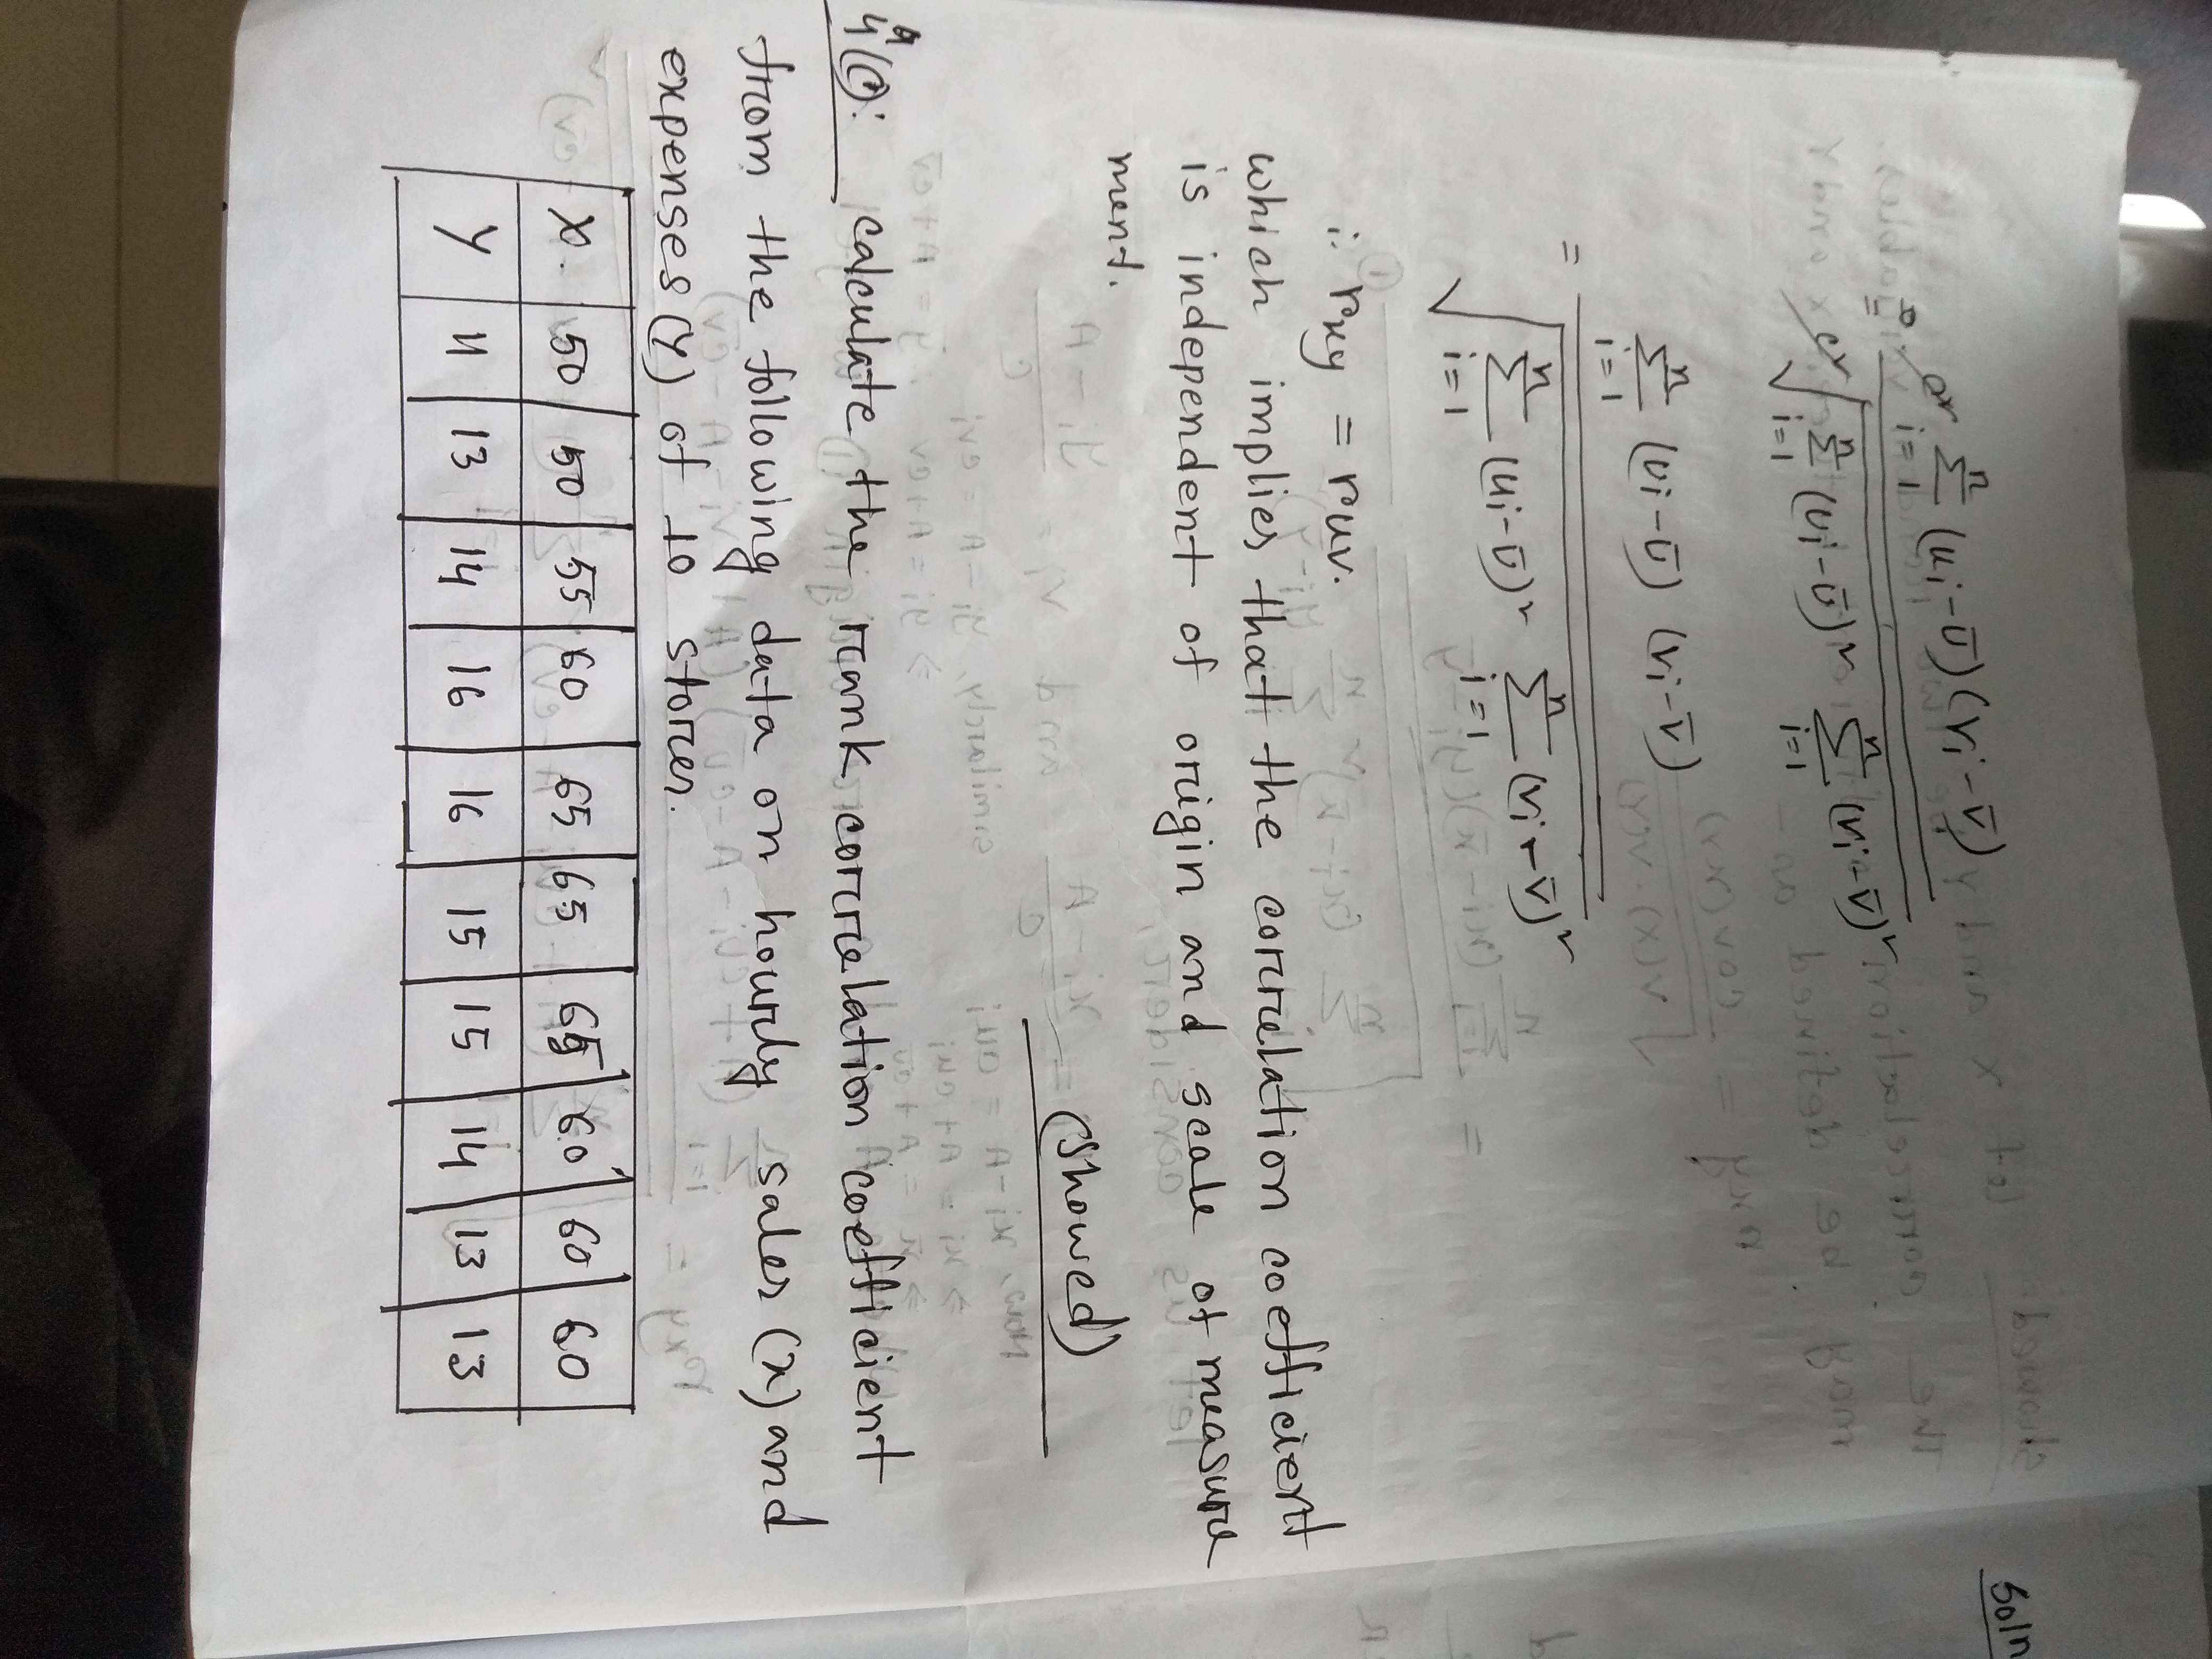 Soln
= c² Σⁿᵢ₌₁ (uᵢ-ū)(vᵢ-v̄) / c² √(Σⁿᵢ₌₁ (uᵢ-ū)² Σⁿᵢ₌₁ (vᵢ-v̄)²)
= Σⁿᵢ₌₁ (uᵢ-ū) (vᵢ-v̄) / √(Σⁿᵢ₌₁ (uᵢ-ū)² Σⁿᵢ₌₁ (vᵢ-v̄)²)
∴ rxy = ruv.
which implies that the correlation coefficient
is independent of origin and scale of measure
ment.
(showed)
calculate the rank correlation coefficient
from the following data on hourly sales (x) and
expenses (y) of 10 stores.
X. 50 50 55 60 65 65 65 60 60 60
Y 11 13 14 16 16 15 15 14 13 13